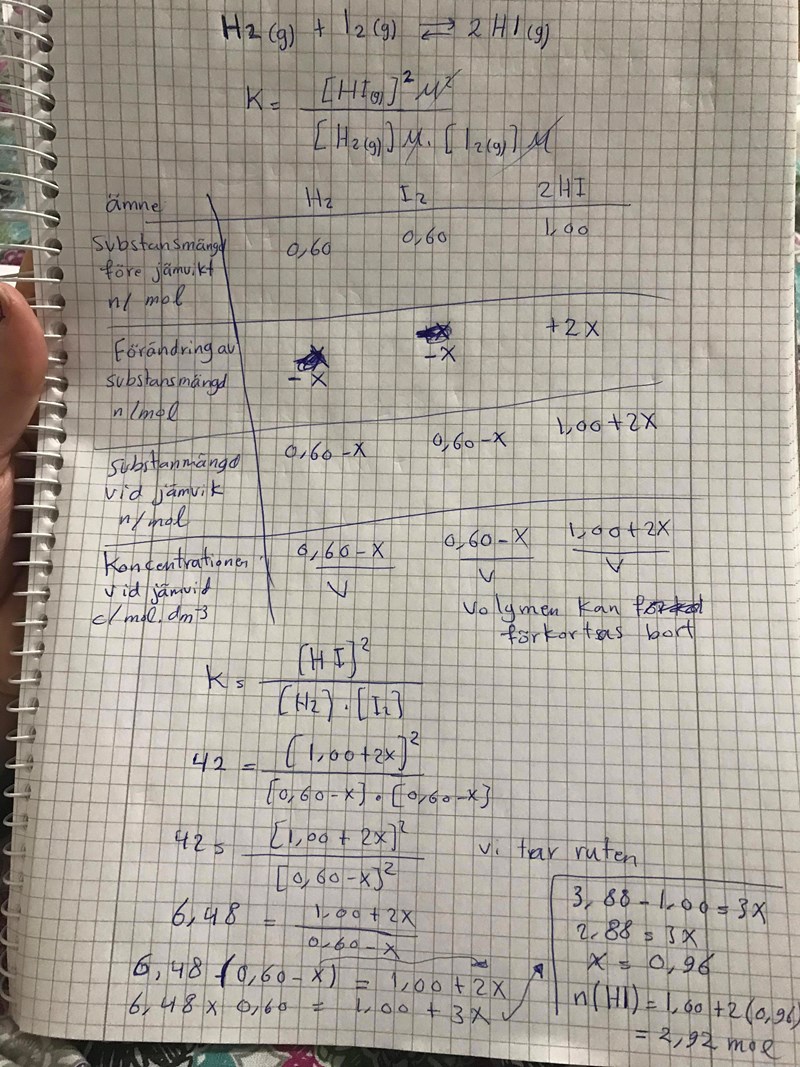 H2(g) + I2(g) ⇌ 2HI(g)
K = [HI(g)]² M² / [H2(g)] M · [I2(g)] M
ämne H2 I2 2HI
substansmängd före jämvikt n/mol 0,60 0,60 1,00
Förändring av substansmängd n/mol -x -x +2x
substanmängd vid jämvik n/mol 0,60-x 0,60-x 1,00+2x
Koncentrationen vid jämvid c/mol·dm⁻³ 0,60-x / V 0,60-x / V 1,00+2x / V
Volymen kan
förkortas bort
K = [HI]² / [H2] · [I2]
42 = [1,00+2x]² / [0,60-x] · [0,60-x]
42 = [1,00 + 2x]² / [0,60-x]²
vi tar ruten
6,48 = 1,00+2x / 0,60-x
6,48 (0,60-x) = 1,00+2x
6,48 x 0,60 = 1,00 + 3x
3,88-1,00=3x
2,88=3x
x = 0,96
n(HI)=1,00+2(0,96)
= 2,92 mol